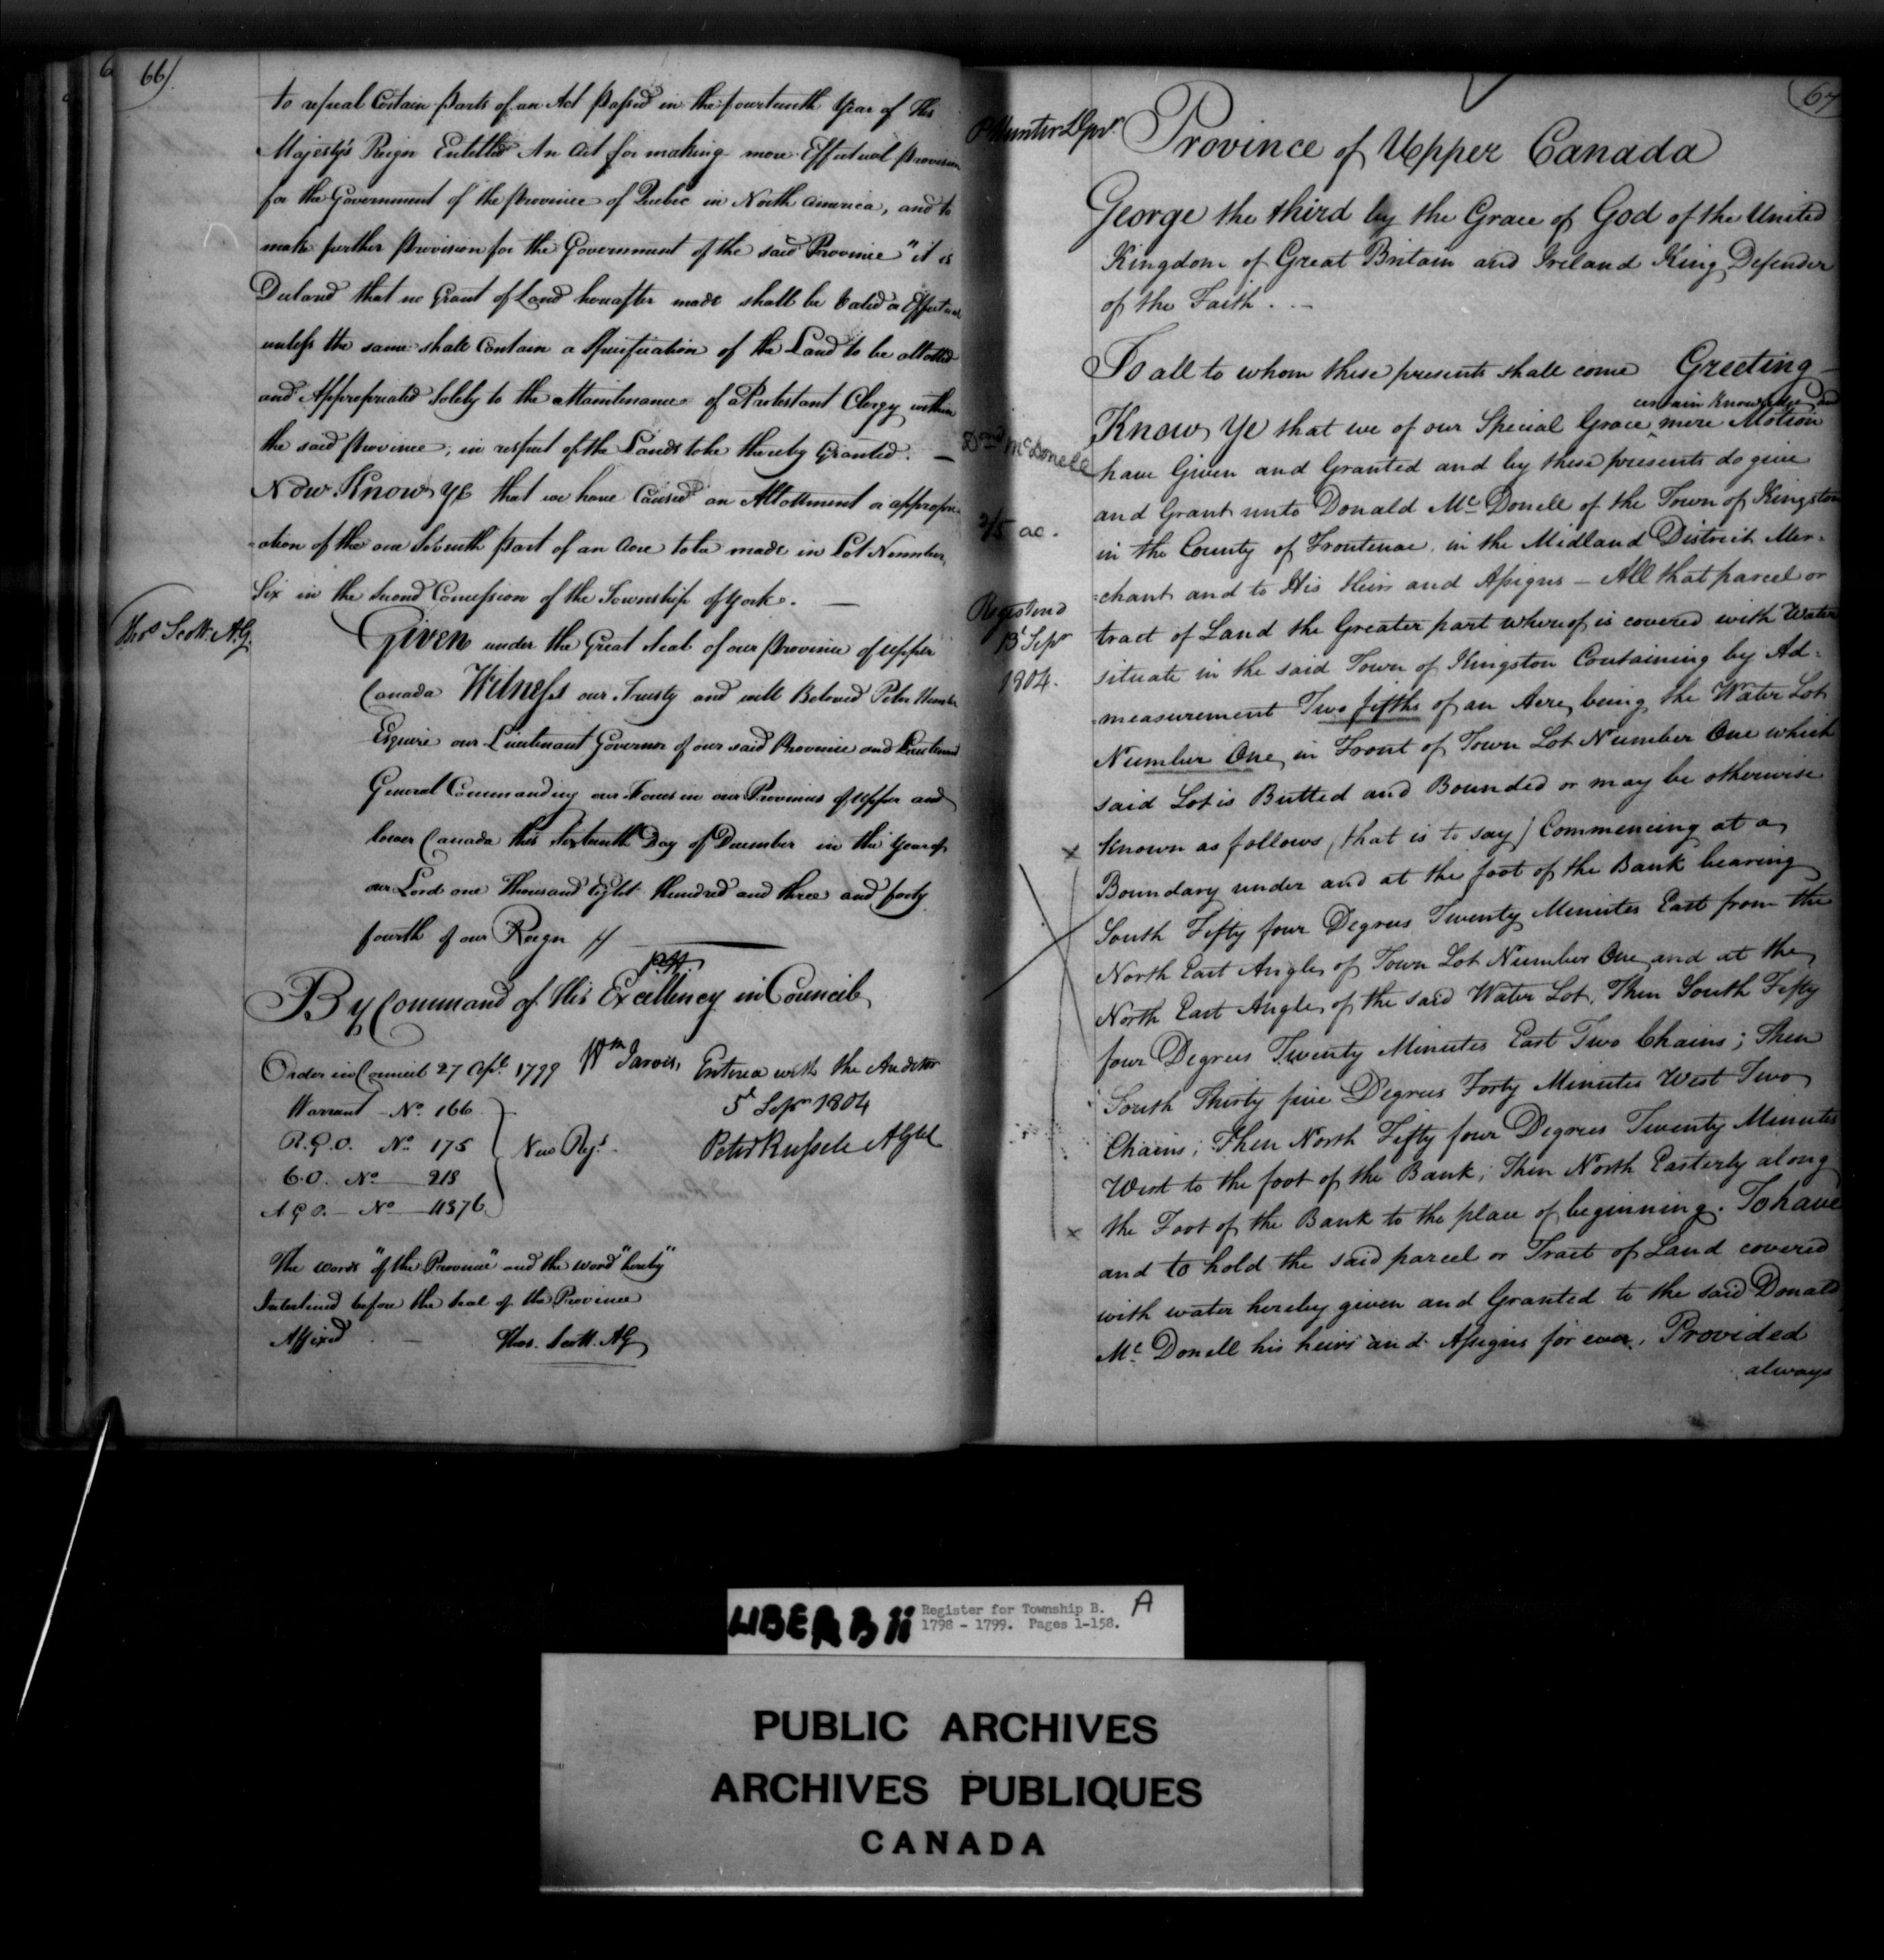 66)
to repeal Certain parts of an Act passed in the fourteenth Year of His
Majesty's Reign Entitled An Act for making more Effectual provision
for the Government of the province of Quebec in North america, and to
make further provision for the Government of the said Province" it is
Declared that no Grant of Land hereafter made shall be Valid or Effectual
unless the same shall Contain a Specification of the Land to be allotted
and Appropriated Solely to the Maintenance of a Protestant Clergy within
the said province, in respect of the Lands to be thereby Granted. —
Now Know Ye that we have Caused an Allotment or appropri-
-ation of the one Seventh part of an Acre to be made in Lot Number
Six in the Second Concession of the Township of York. —
Thos Scott A.G.
Given under the Great Seal of our province of upper
Canada Witness our Trusty and well Beloved Peter Hunter
Esquire our Lieutenant Governor of our said Province and Lieutenant
General Commanding our Forces in our Provinces of upper and
lower Canada this Sixteenth Day of December in the Year of
our Lord one Thousand Eight Hundred and three and forty
fourth of our Reign //
P.H.
By Command of His Excellency in Council
Order in Council 27 Apl. 1799 Wm Jarvis, Entered with the Auditor
Warrant No. 166 5th Sepr 1804
R.G.O. No. 175 New Regs. Peter Russell AGbl
C.O. No 218
A.G.O. — No 11376
The words "of the Province" and the word "hereby"
Interlined before the Seal of the Province
Affixed — Thos. Scott. AG
67
P Hunter L Govr.
Province of Upper Canada
George the third by the Grace of God of the United
Kingdom of Great Britain and Ireland King Defender
of the Faith. —
To all to whom these presents shall come Greeting —
certain Knowledge and
Know Ye that we of our Special Grace ^ mere Motion
Dond McDonell
have Given and Granted and by these presents do give
and Grant unto Donald Mc Donell of the Town of Kingston
2/5 ac.
in the County of Frontenac in the Midland District Mer-
=chant and to His Heirs and Assigns — All that parcel or
Registered
13th Sepr
1804.
tract of Land the Greater part whereof is covered with Water
situate in the said Town of Kingston Containing by Ad-
-measurement Two fifths of an Acre, being the Water Lot
Number One, in Front of Town Lot Number One which
said Lot is Butted and Bounded or may be otherwise
Known as follows, (that is to say) Commencing at a
Boundary under and at the foot of the Bank bearing
South Fifty four Degrees Twenty Minutes East from the
North East Angle, of Town Lot Number One, and at the
North East Angle, of the said Water Lot, Then South Fifty
four Degrees Twenty Minutes East Two Chains; Then
South Thirty five Degrees Forty Minutes West Two
Chains; Then North Fifty four Degrees Twenty Minutes
West to the foot of the Bank; Then North Easterly along
the Foot of the Bank to the place of beginning. To have
and to hold the said parcel or Tract of Land covered
with water hereby given and Granted to the said Donald
Mc Donell his heirs and Assigns for ever. Provided
always
LIBER B ii
Register for Township B.
1798 - 1799. Pages 1-158.
A
PUBLIC ARCHIVES
ARCHIVES PUBLIQUES
CANADA